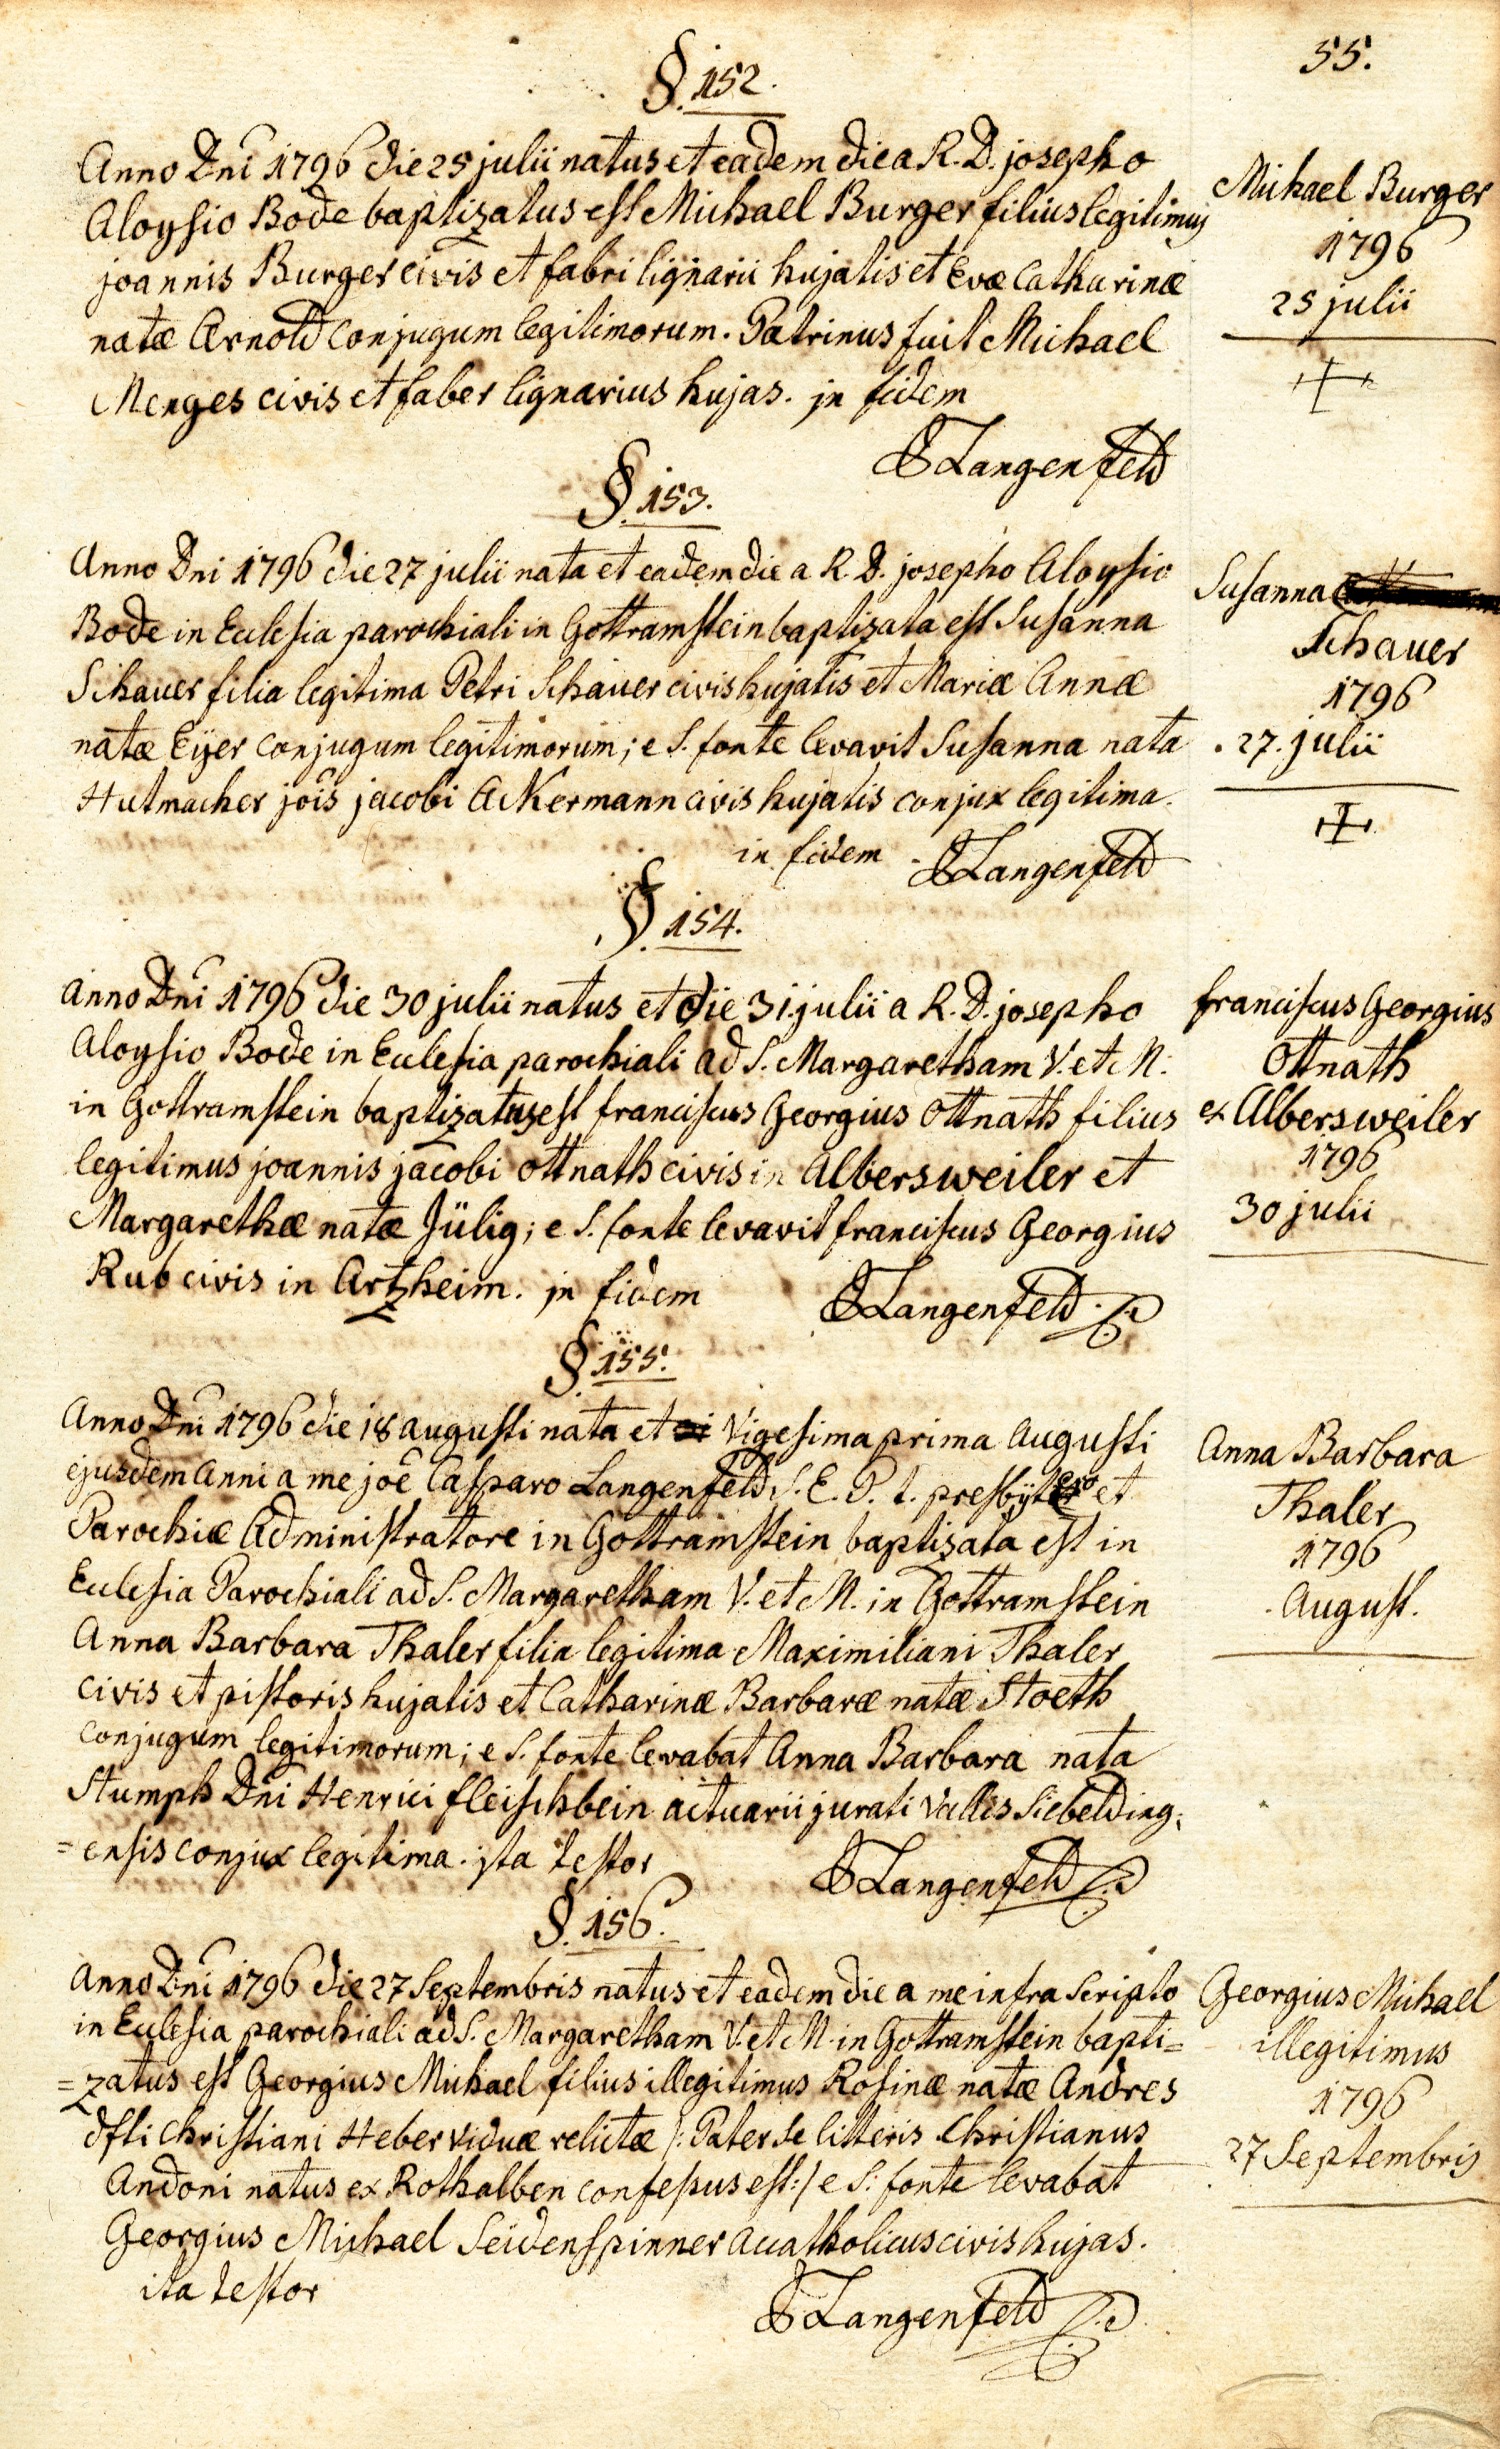 55.
§. 152.
Anno Dni 1796 die 25 julii natus et eadem die a R. D. josepho
Aloysio Bode baptizatus est Michael Burger filius legitimus
joannis Burger civis et fabri lignarii hujatis et Evæ Catharinæ
natæ Arnold conjugum legitimorum. Patrinus fuit Michael
Menges civis et faber lignarius hujas. jn fidem
Langenfeld
Michael Burger
1796
25 julii
§. 153.
Anno Dni 1796 die 27 julii nata et eadem die a R. D. josepho Aloysio
Bode in Eclesia parochiali in Gottramstein baptizata est Susanna
Schauer filia legitima Petri Schauer civis hujatis et Mariæ Annæ
natæ Eÿer conjugum legitimorum; e S. fonte levavit Susanna nata
Hutmacher jois jacobi Ackermann civis hujatis conjux legitima.
in fidem Langenfeld
Susanna
Schauer
1796
27. julii
§. 154.
Anno Dni 1796 die 30 julii natus et die 31. julii a R. D. josepho
Aloysio Bode in Eclesia parochiali ad S. Margaretham V. et M:
in Gottramstein baptizatus est franciscus Georgius Ottnath filius
legitimus joannis jacobi Ottnath civis in Albersweiler et
Margarethæ natæ Jülig; e S. fonte levavit franciscus Georgius
Rub civis in Artzheim. jn fidem
Langenfeld
franciscus Georgius
Ottnath
ex Albersweiler
1796
30 julii
§. 155.
Anno Dni 1796 die 18 augusti nata et Vigesima prima Augusti
ejusdem Anni a me joe Casparo Langenfeld S. E. P. t. presbÿtero et
Parochiæ Administratore in Gottramstein baptizata est in
Eclesia Parochiali ad S. Margaretham V. et M. in Gottramstein
Anna Barbara Thaler filia legitima Maximiliani Thaler
civis et pistoris hujatis et Catharinæ Barbaræ natæ Stoeth
conjugum legitimorum; e S. fonte levabat Anna Barbara nata
Stumph Dni Henrici fleischbein actuarii jurati Vallis Siebelding=
=ensis conjux legitima. jta testor
Langenfeld
Anna Barbara
Thaler
1796
August.
§. 156.
Anno Dni 1796 die 27 Septembris natus et eadem die a me infra Scripto
in Eclesia parochiali ad S. Margaretham V. et M. in Gottramstein bapti=
=zatus est Georgius Michael filius illegitimus Rosinæ natæ Andres
dfti Christiani Heber viduæ relictæ /: Pater se litteris Christianus
Andoni natus ex Rothalben confessus est :/ e S: fonte levabat
Georgius Michael Seidenspinner acatholicus civis hujas.
ita testor
Langenfeld
Georgius Michael
illegitimus
1796
27 Septembris